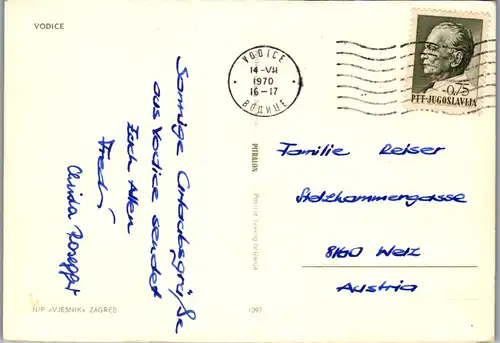 VODICE
VODICE
14-VII
1970
16-17
ВОДИЦЕ
0,75
PTT-JUGOSLAVIJA
Sonnige Urlaubsgrüße
aus Vodice sendet
Euch Allen
Fredi
Rosegger
Familie Reiser
Stelzhammergasse
8160 Weiz
Austria
NIP »VJESNIK« ZAGREB
1097